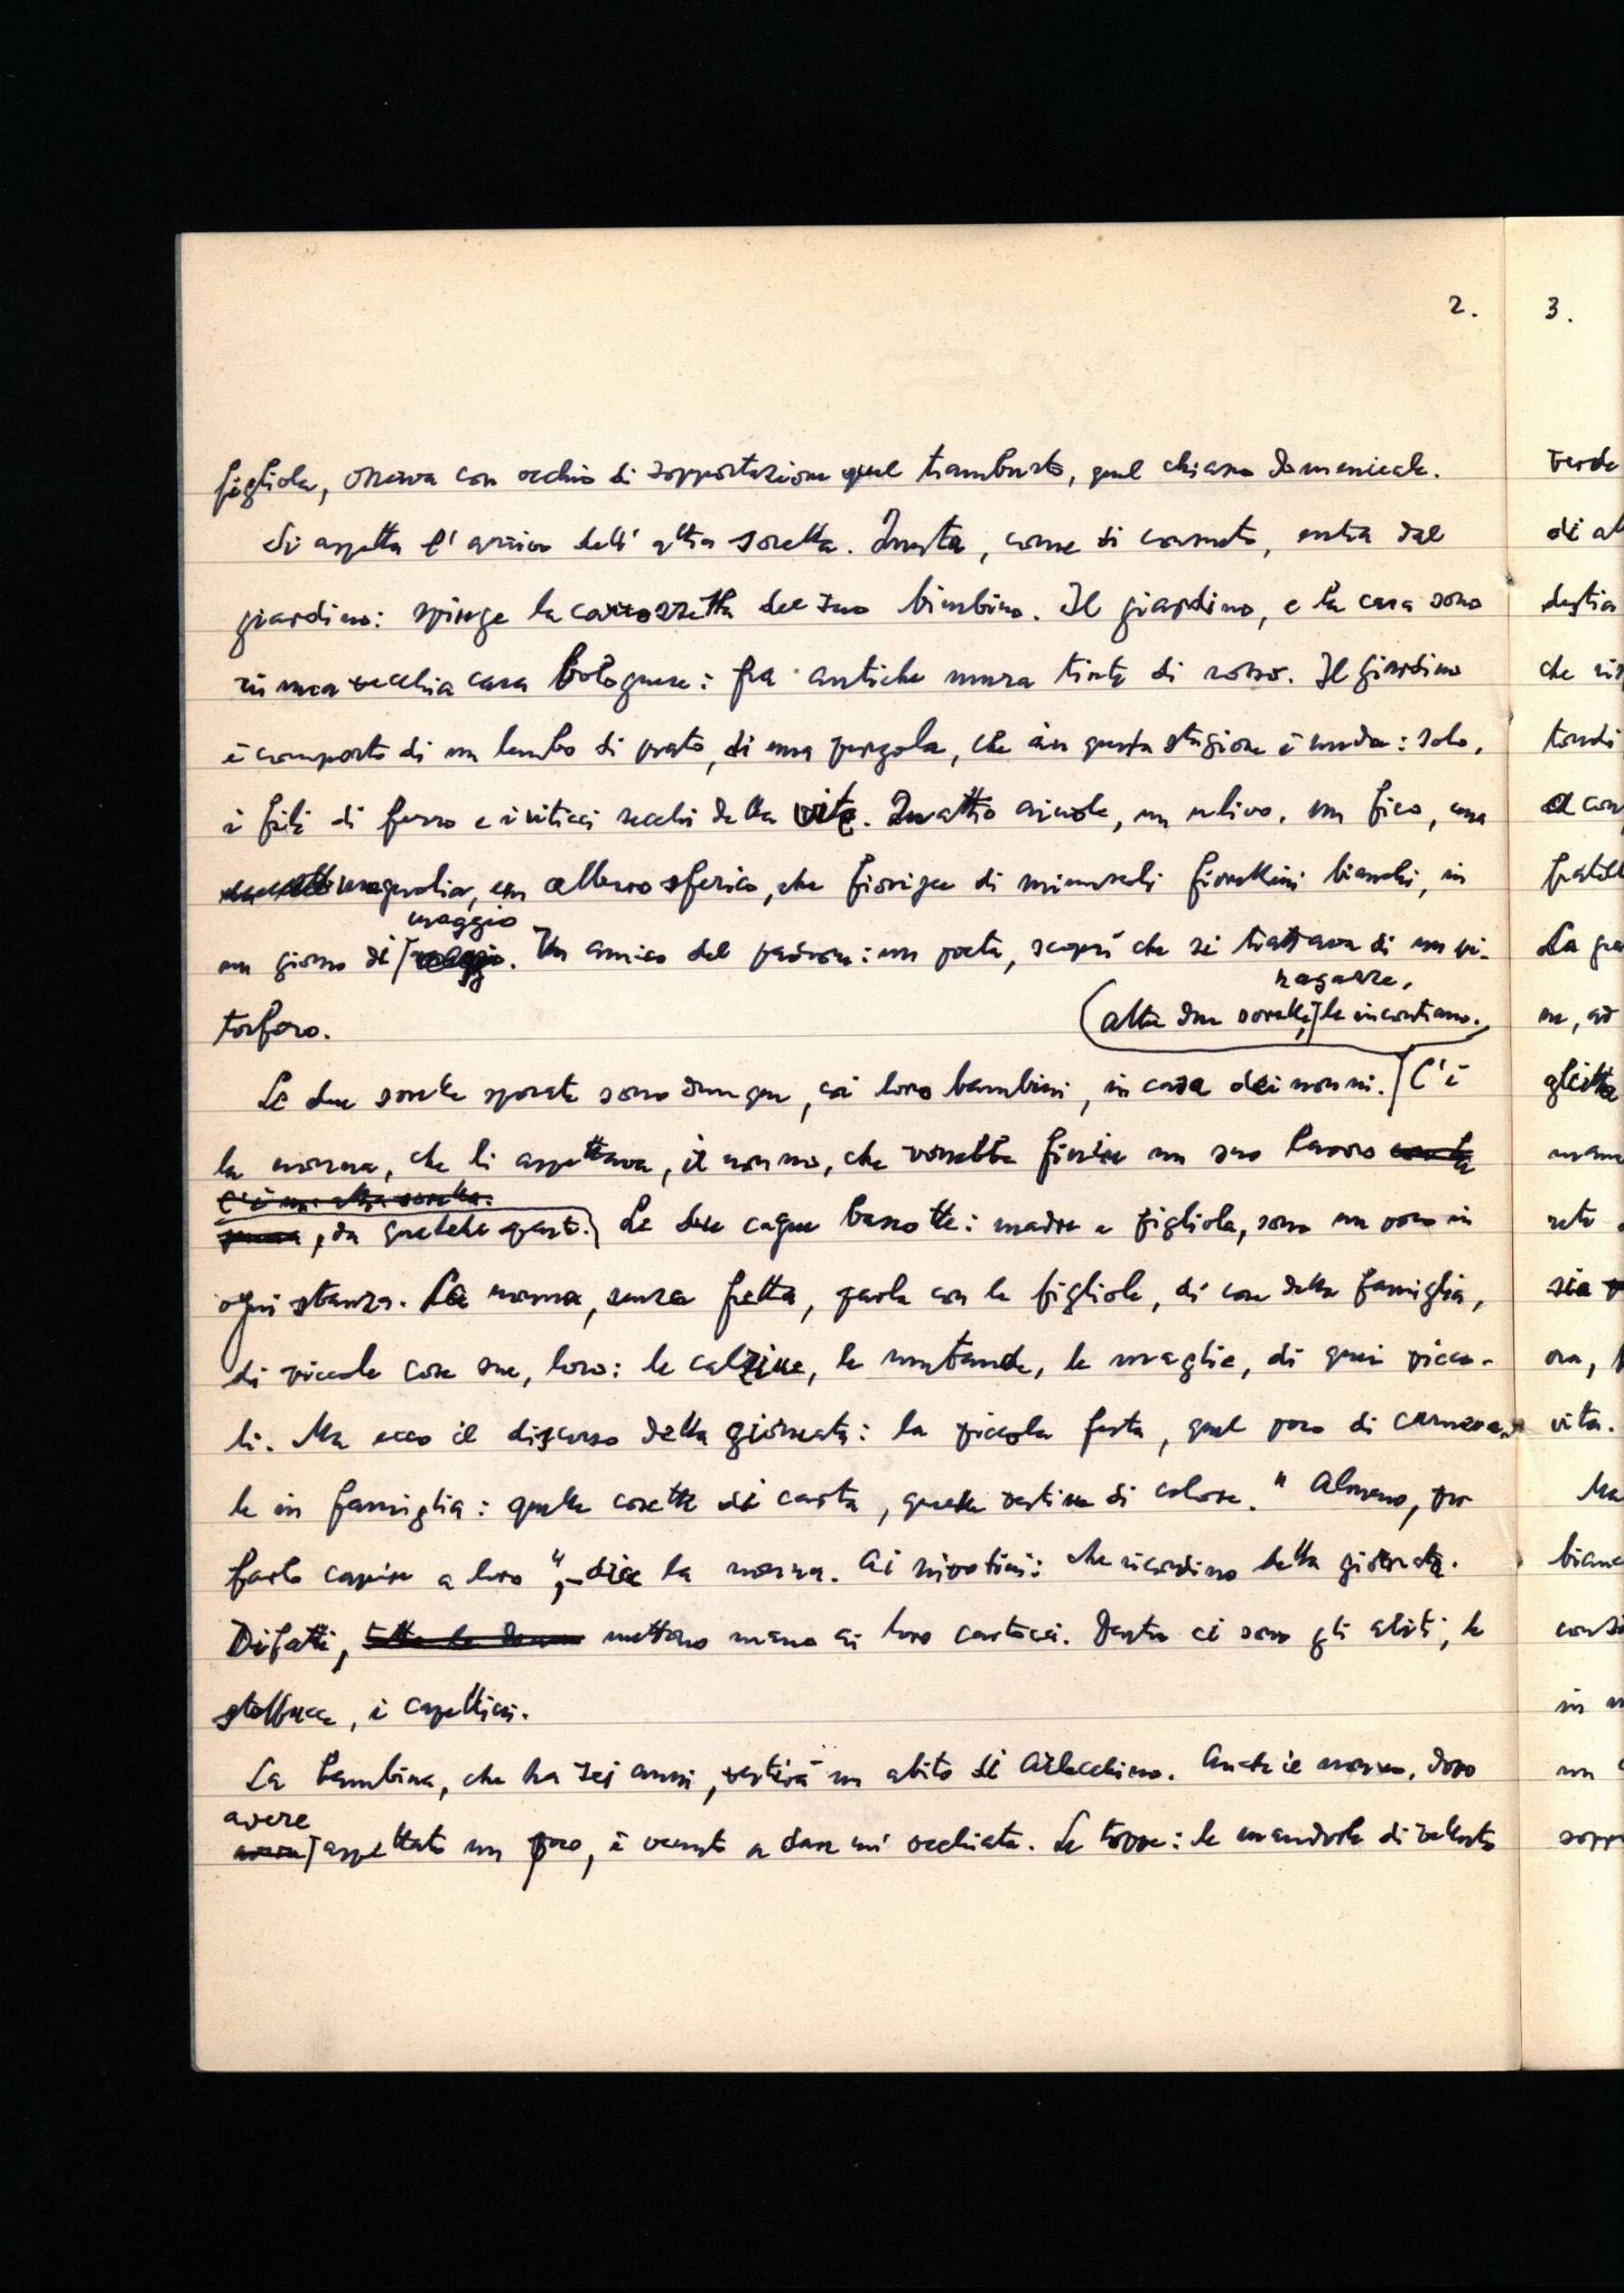 2.
figliola, osserva con occhio di sopportazione quel trambusto, quel chiasso domenicale.
Si aspetta l'arrivo dell'altra sorella. Questa, come di consueto, entra dal
giardino: spinge la carrozzetta del suo bimbino. Il giardino, e la casa sono
in una vecchia casa bolognese: fra antiche mura tinte di rosso. Il giardino
è composto di un lembo di prato, di una pergola, che in questa stagione è nuda: solo,
i fili di ferro e i viticci secchi della vite. Quattro aiuole, un ulivo, un fico, una
magnolia, un albero sferico, che fiorisce di minuscoli fiorellini bianchi, in
maggio
un giorno di maggio. Un amico del padrone: un poeta, scoprì che si trattava di un pi-
ragazze,
tosforo. (altre due sorelle, le incontrano.
Le due sorelle sposate sono dunque, coi loro bambini, in casa dei nonni. C'è
la nonna, che li aspettava, il nonno, che vorrebbe finire un suo lavoro con la
C'è un'altra sorella.
penna, da qualche parte.) Le due cagne bassotte: madre e figliola, sono un poco in
ogni stanza. La nonna, senza fretta, parla con le figliole, di cose della famiglia,
di piccole cose sue, loro: le calzine, le mutande, le maglie, di quei picco-
li. Ma ecco il discorso della giornata: la piccola festa, quel poco di carneva-
le in famiglia: quelle cosette di carta, quelle vestine di colore. "Almeno, per
farlo capire a loro", - dice la nonna. Ai nipotini: che ricordino della giornata.
Difatti, tutte le donne mettono mano ai loro cartocci. Dentro ci sono gli abiti, le
stoffucce, i capellicci.
La bambina, che ha sei anni, vestirà un abito di Arlecchino. Anche il nonno, dopo
avere
aspettato un poco, è venuto a dare un' occhiata. Le toppe: le mandorle di velluto
3.
verde
di al
destra
che ris
tondi
a con
fratell
La
ne, ad
vita.
Ma
bianc
in
un